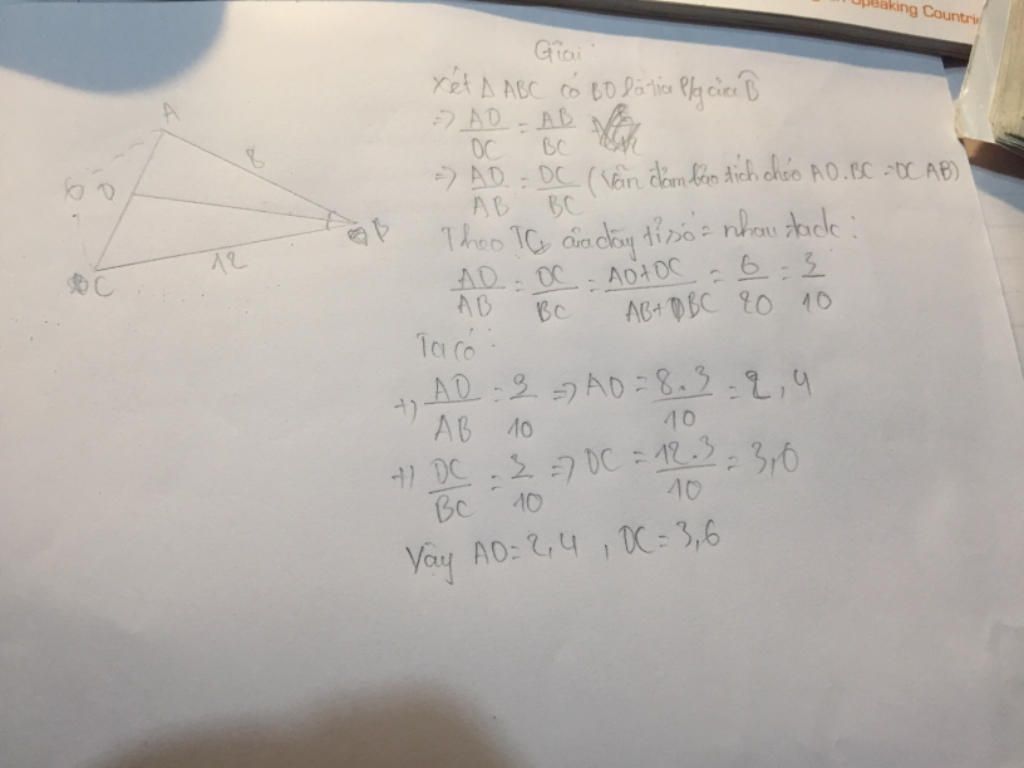 Speaking Countri
Giải
Xét Δ ABC có BD là tia p/g của B̂
=> AD/DC = AB/BC
=> AD/AB = DC/BC (Vẫn đảm bảo tích chéo AD.BC = DC AB)
Theo TC của dãy tỉ số = nhau ta dc:
AD/AB = DC/BC = AD+DC/AB+BC = 6/20 = 3/10
Ta có:
+) AD/AB = 3/10 => AD = 8.3/10 = 2,4
+) DC/BC = 3/10 => DC = 12.3/10 = 3,6
Vậy AD = 2,4 , DC = 3,6
A
8
6 D
B
12
C